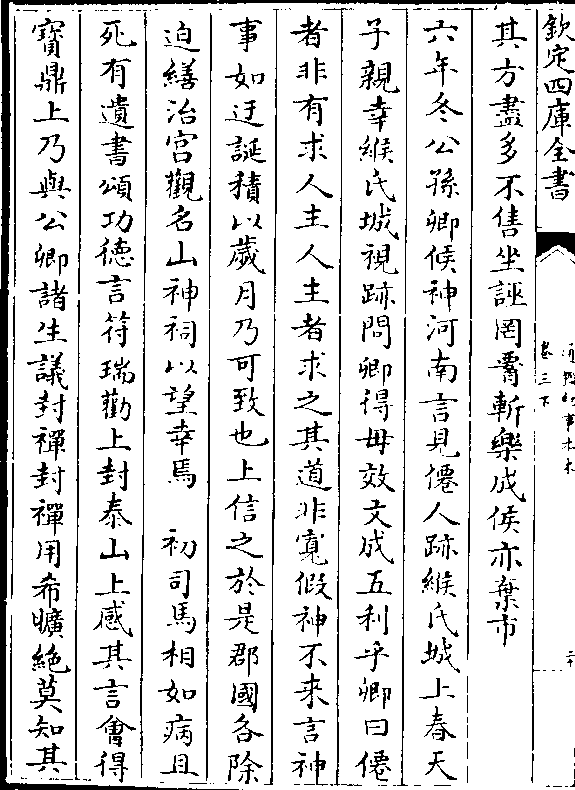 欽定四庫全書
卷三下
其方盡多不售坐誣罔腰斬樂成侯亦棄市
六年冬公孫卿候神河南言見僊人跡緱氏城上春天
子親幸緱氏城視跡問卿得毋效文成五利乎卿曰僊
者非有求人主人主者求之其道非寬假神不來言神
事如迂誕積以歲月乃可致也上信之於是郡國各除
迫繕治宮觀名山神祠以望幸焉　初司馬相如病且
死有遺書頌功德言符瑞勸上封泰山上感其言會得
寶鼎上乃與公卿諸生議封禪封禪用希曠絶莫知其